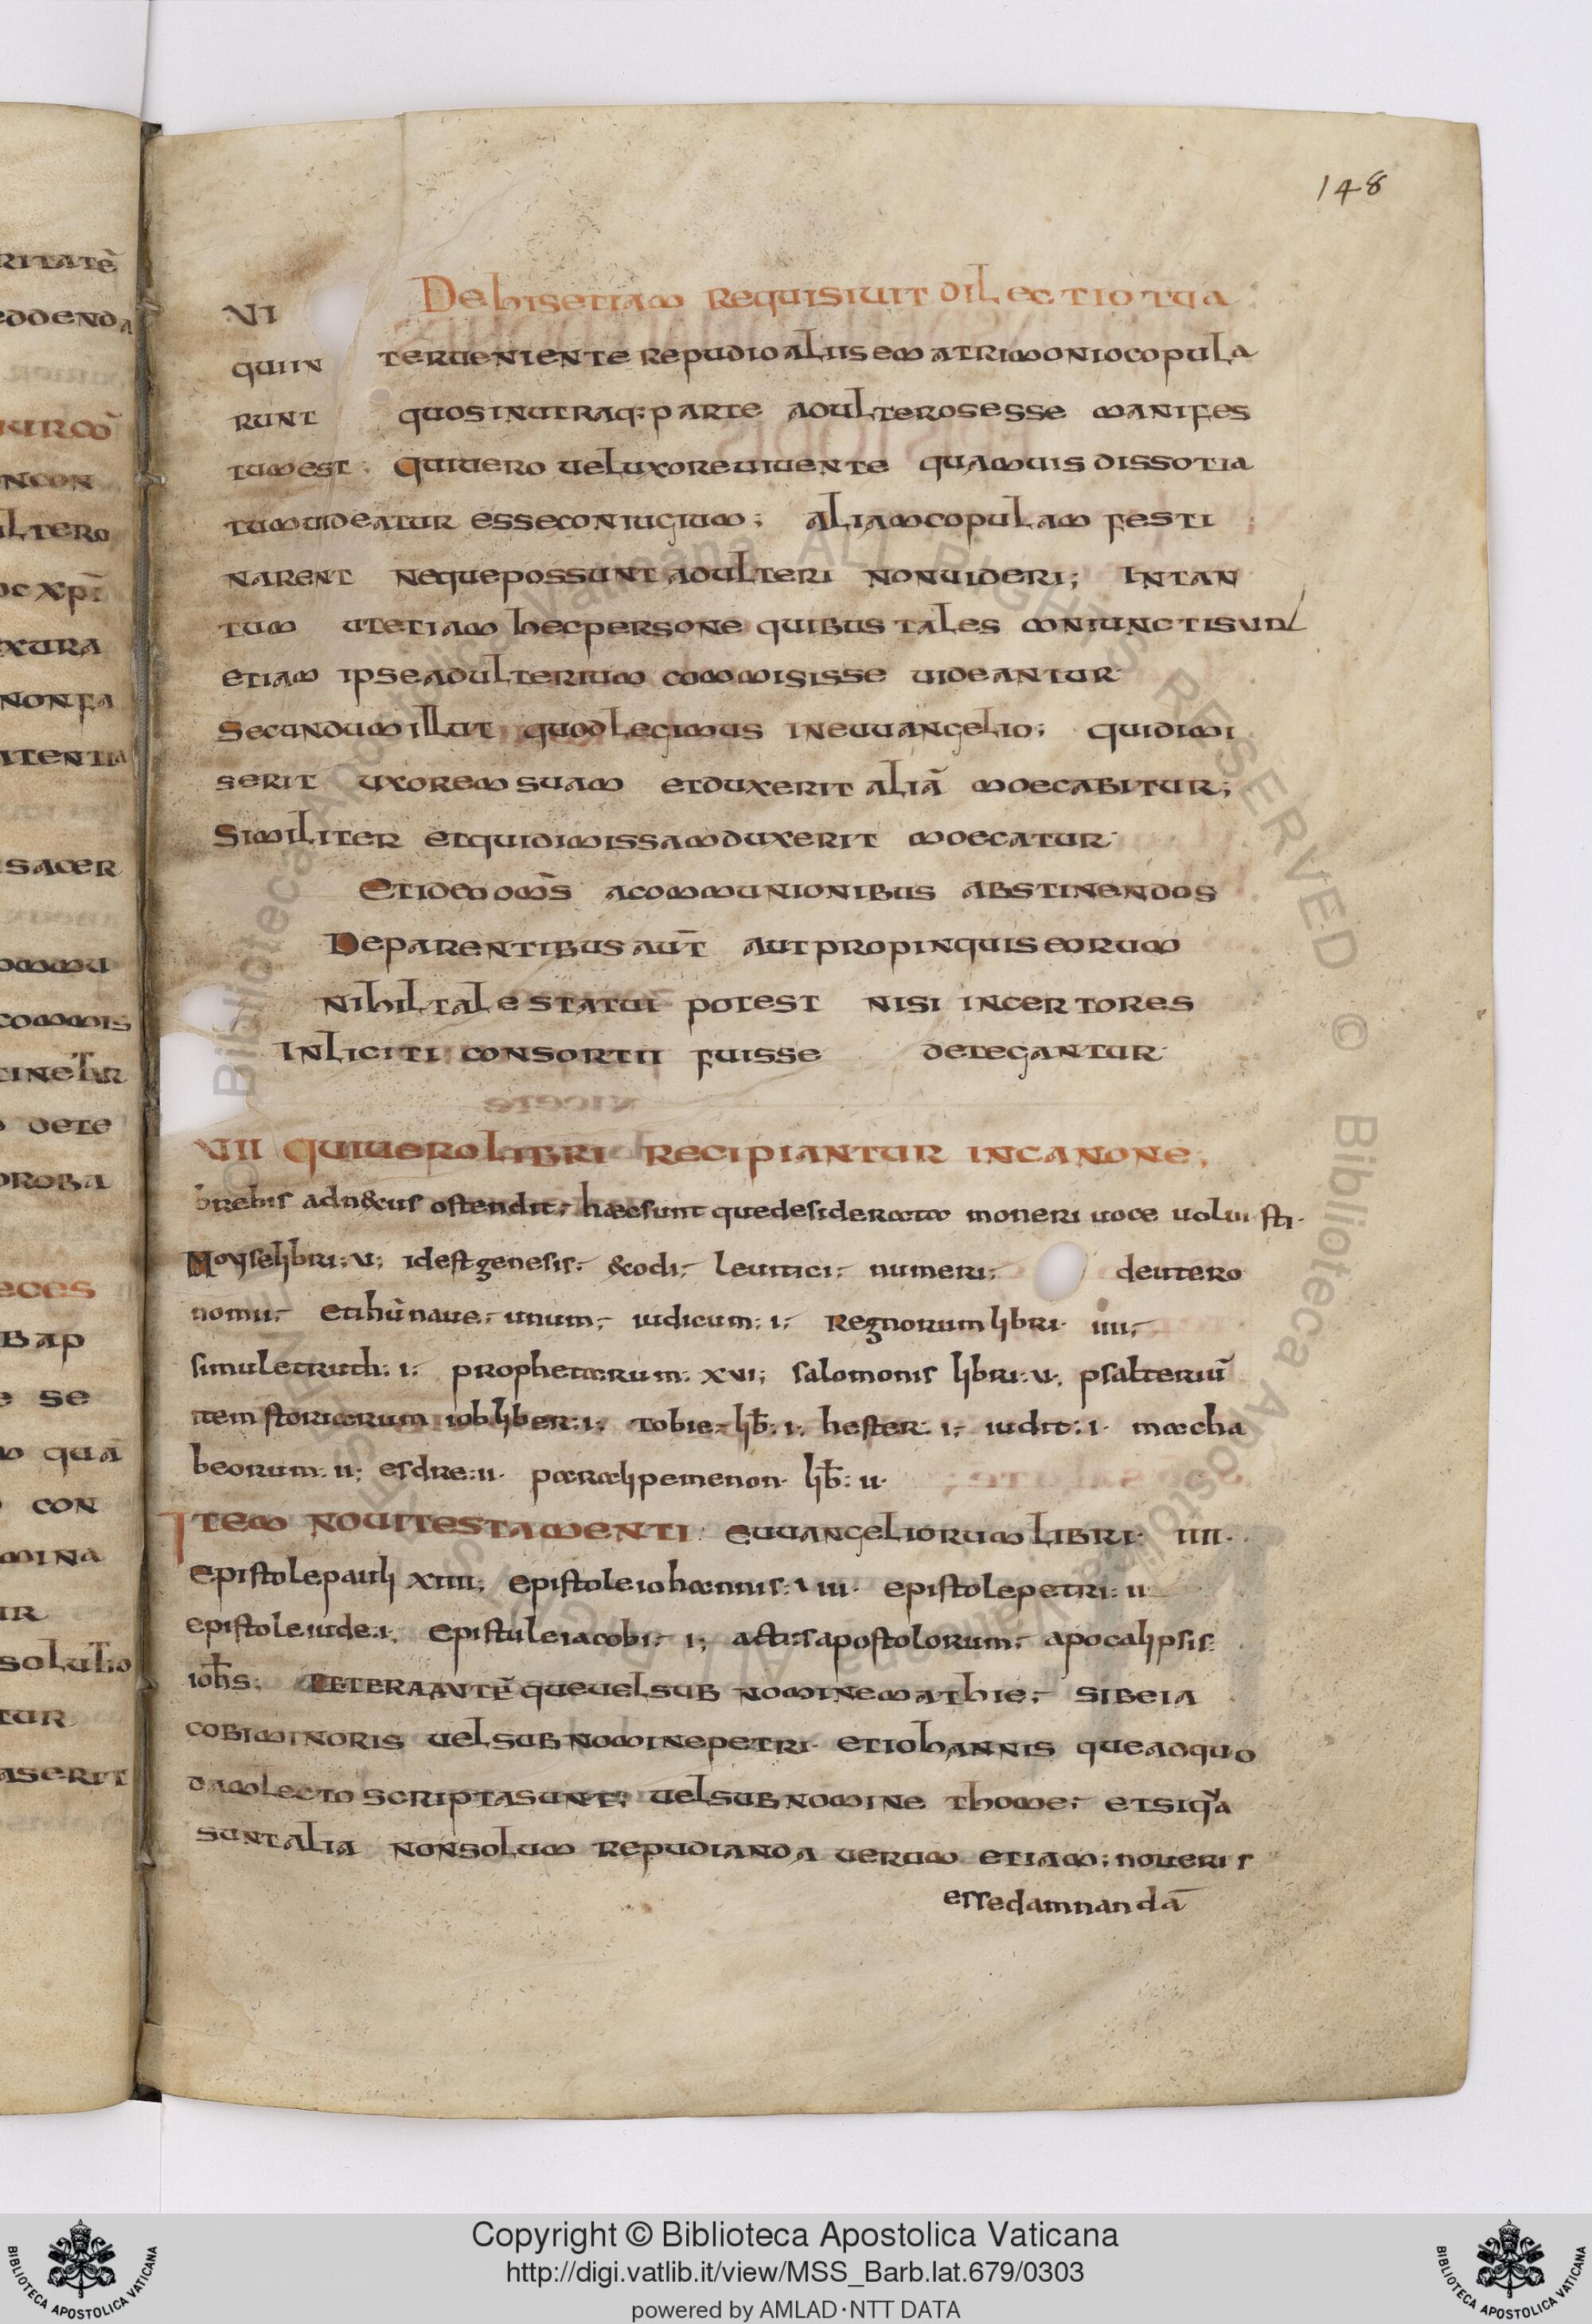 148
VI De his etiam requisiuit dilectio tua
qui interueniente repudio aliis ematrimonio copula
runt quos in utraq; parte adulteros esse manifes
tum est. Qui uero uel uxore uiuente quamuis dissotia
tum uideatur esse coniugium; aliam copulam festi
narent neque possunt adulteri non uideri; Intan
tum ut etiam hec persone quibus tales coniuncti sunt
etiam ipse adulterium commisisse uideantur
Secundum illut quod legimus in euuangelio; qui dimi
serit uxorem suam et duxerit aliā moecabitur;
Similiter et qui dimissam duxerit moecatur
Et idem om̄s acommunionibus abstinendos
De parentibus aut̄ aut propinquis eorum
nihil tale statui potest nisi incertores
Inliciti consortii fuisse detegantur
VII Qui uero libri recipiantur in canone;
brebis adn&us ostendit; haec sunt que desiderata moneri uoce uoluisti.
Moyse libri: v; id est genesis; &codi; leuitici; numeri; deutero
nomii; et ihū naue; unum; iudicum: i; Regnorum libri iiii;
simul et ruth: i; prophetarum: xvi; salomonis libri: v; psalteriū
item storiarum iob liber: i; tobie; lib̄: i; hester: i; iudit: i. macha
beorum: ii; esdre: ii. paralipemenon. lib̄: ii.
Item noui testamenti: euuangeliorum libri. iiii.
epistole pauli xiiii; epistole iohannis: iii. epistole petri: ii
epistole iude: i. epistule iacobi; i; actus apostolorum; apocalipsis:
ioh̄s. Cetera autē que uel sub nomine mathie; sibe ia
cobi minoris uel sub nomine petri. et iohannis que a quo
dam lecto scripta sunt; uel sub nomine thome; et si qua
sunt alia non solum repudianda uerum etiam; noueris
esse damnandā
ritatē
eddenda
ncon
ltero
xura
non fa
itentia
sacer
ommu
commis
dete
proba
eces
bap
e se
quā
con
mina
ur
solutio
tur
aserit
© Biblioteca Apostolica Vaticana ALL RIGHTS RESERVED
Copyright © Biblioteca Apostolica Vaticana
http://digi.vatlib.it/view/MSS_Barb.lat.679/0303
powered by AMLAD·NTT DATA
BIBLIOTECA APOSTOLICA VATICANA
BIBLIOTECA APOSTOLICA VATICANA